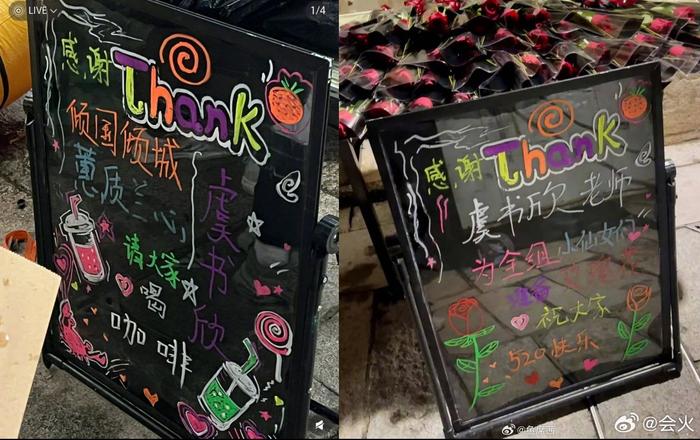 LIVE
1/4
感谢
Thank
倾国倾城
蕙质兰心
虞书欣
请大家
喝
咖啡
感谢
Thank
虞书欣 老师
为全组小仙女们
准备
祝大家
520快乐
@会火